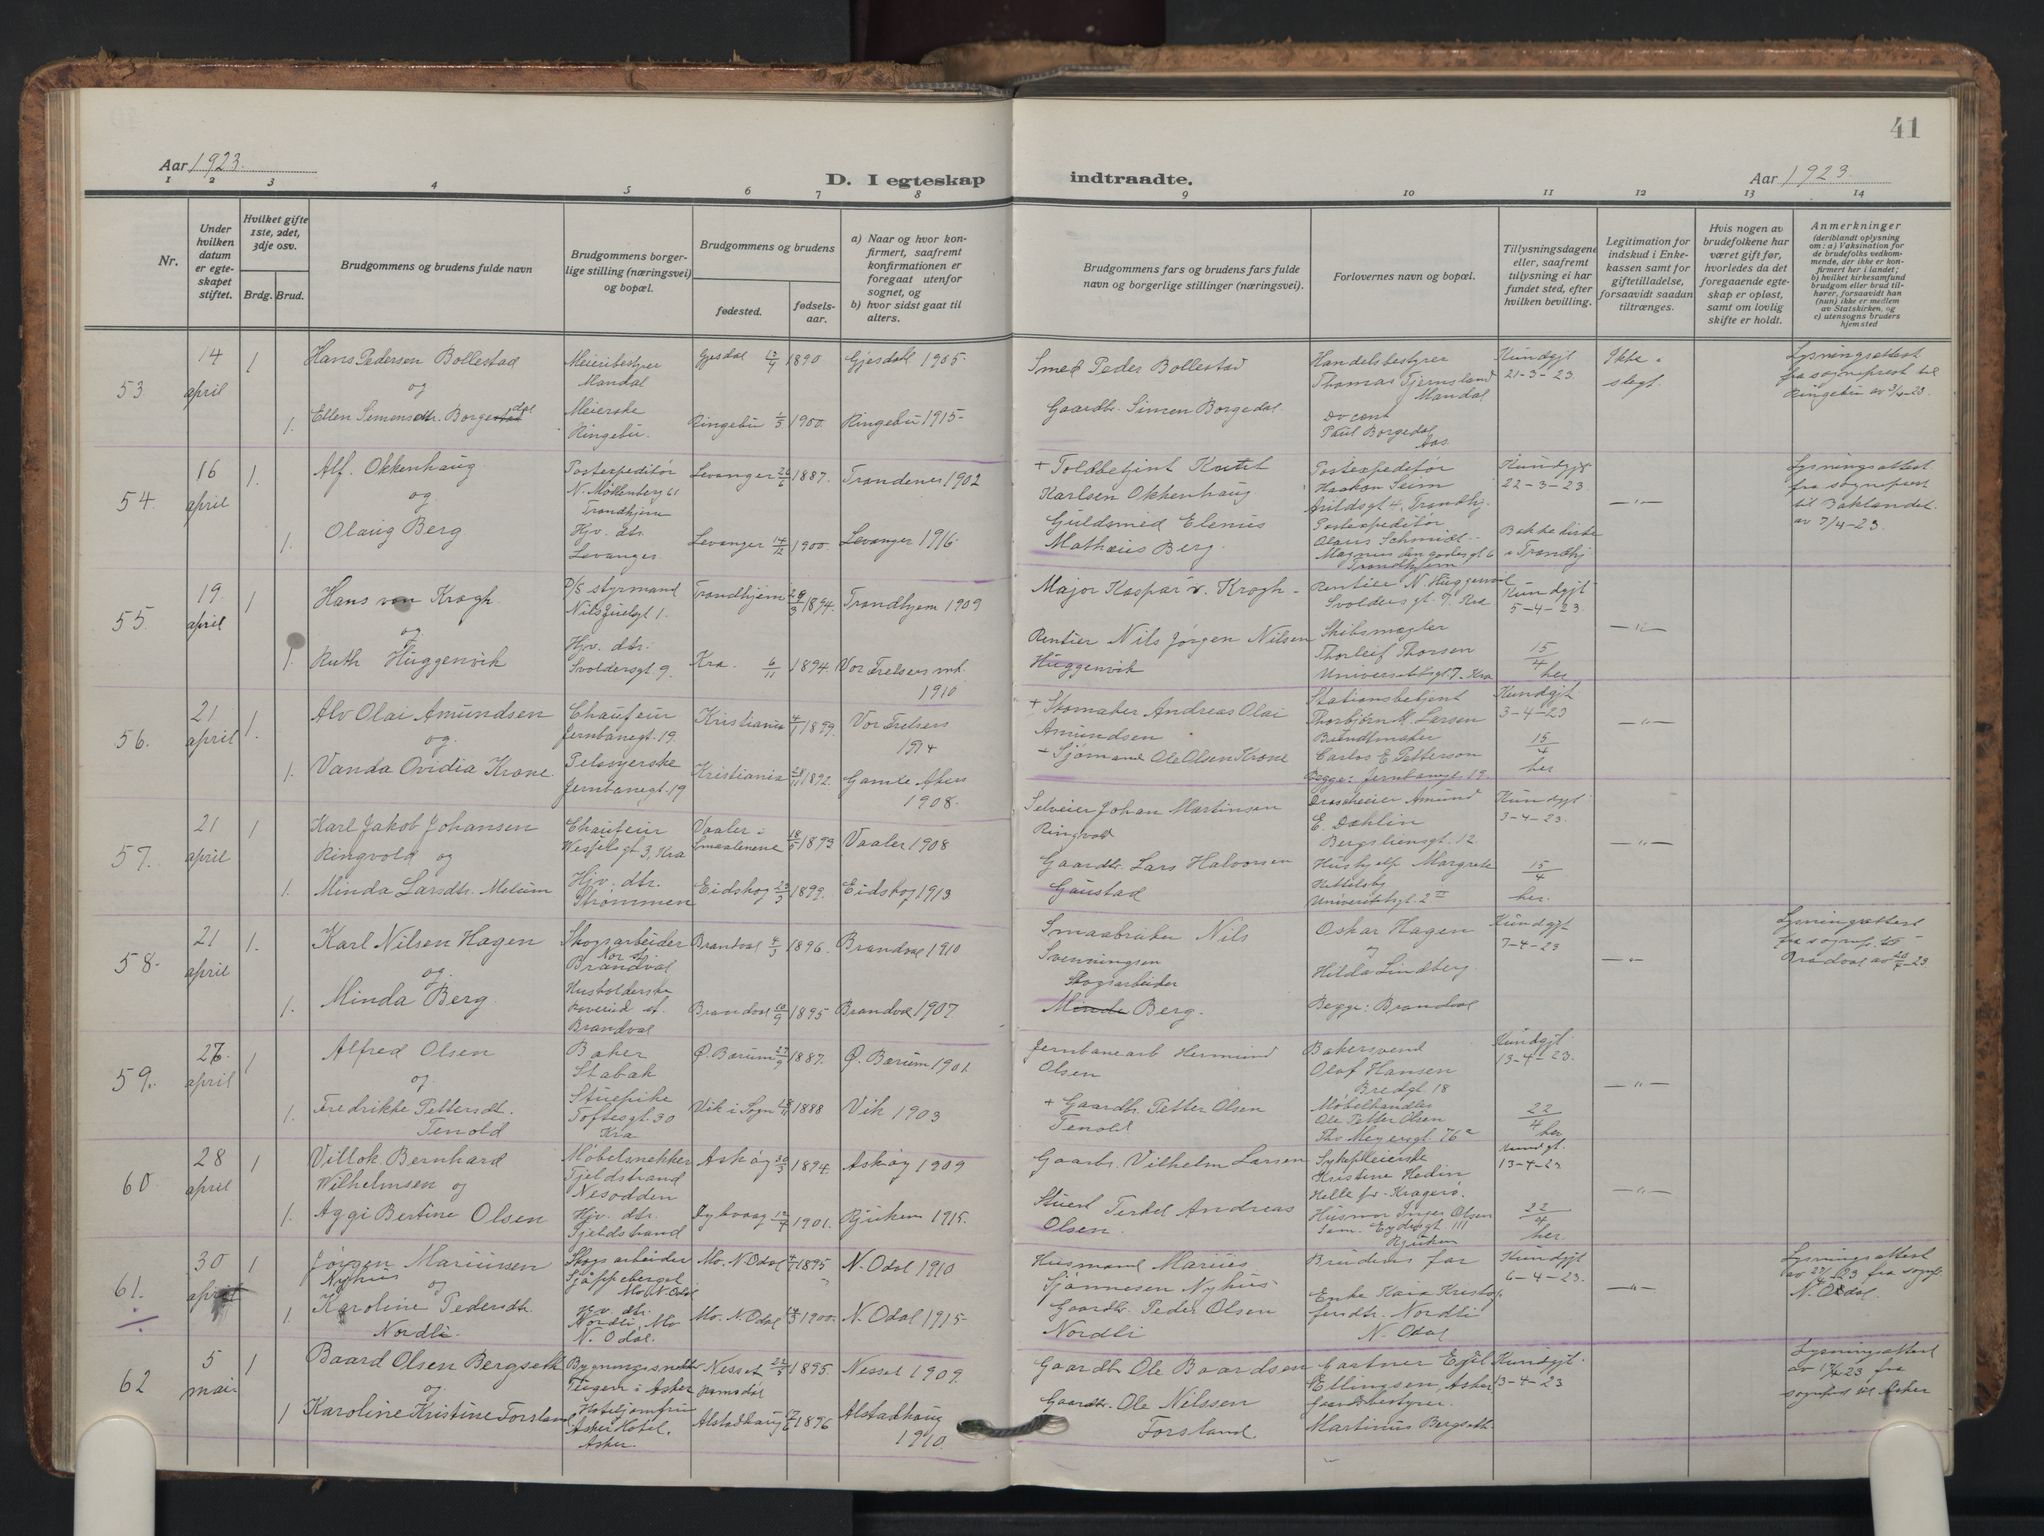 41
Aar 1923.
D. I egteskap indtraadte.
Aar 1923.
1 2 3 4 5 6 7 8 9 10 11 12 13 14
Nr.
Under hvilken datum er egteskapet stiftet.
Hvilket gifte 1ste, 2det, 3dje osv.
Brdg. Brud.
Brudgommens og brudens fulde navn
Brudgommens borgerlige stilling (næringsvei) og bopæl.
Brudgommens og brudens
fødested.
fødselsaar.
a) Naar og hvor konfirmert, saafremt konfirmationen er foregaat utenfor sognet, og
b) hvor sidst gaat til alters.
Brudgommens fars og brudens fars fulde navn og borgerlige stillinger (næringsvei).
Forlovernes navn og bopæl.
Tillysningsdagene eller, saafremt tillysning ei har fundet sted, efter hvilken bevilling.
Legitimation for indskud i Enkekassen samt for giftetilladelse, forsaavidt saadan tiltrænges.
Hvis nogen av brudefolkene har været gift før, hvorledes da det foregaaende egteskap er opløst, samt om lovlig skifte er holdt.
Anmerkninger
(deriblandt oplysning om: a) Vaksination for de brudefolks vedkommende, der ikke er konfirmert her i landet; b) hvilket kirkesamfund brudgom eller brud tilhører, forsaavidt han (hun) ikke er medlem av Statskirken, og c) utensogns bruders hjemsted
53 14 april 1 Hans Pedersen Bollestad Meieribestyrer Mandal Gjesdal 1890 Gjesdal 1905. Smed Peder Bollestad Handelsbestyrer Thomas Tjernsland Mandal Kundgjt 21-3-23. Ikke slegt. Lysningsattest fra sogneprest til Ringebu av 3/4-23.
og
1. Ellen Simensdtr. Borgedal Meierske Ringebu. Ringebu 1/5 1900. Ringebu 1915- Gaardbr. Simen Borgedal Docent Paul Borgedal Aas.
54. 16 april 1. Alf. Okkenhaug Postexpeditør N. Møllenberg 61 Trondhjem Levanger 26/6 1887. Trondenes 1902 + Toldbetjent Knut Karlsen Okkenhaug Postexpeditør Haakon Seim Arildsgt 4, Trondhj. Kundgjt 22-3-23. -"- Lysningsattest fra sogneprest til Baklandet av 7/4-23.
og
1. Olaug Berg Hjv. dtr. Levanger. Levanger 14/12 1900. Levanger 1916. Guldsmed Elenus Mathæus Berg. Postexpeditør Olaus Schmidt Magnus den godes gt 6 Trondhjem Bakke kirke i Trondhj
55. 19. april 1 Hans von Krogh. D/S styrmand Nils Juelsgt 1. Trondhjem 1894. Trondhjem 1909 Major Kaspar v. Krogh- Rentier N. Huggenvik Svoldersgt. 7. Kra Kundgjt 5-4-23. -"-
og
1. Ruth Huggenvik Hjv. dtr. Svoldersgt 9. Kra. 6/11 1894. Vor Frelsers mk. 1910 Rentier Nils Jørgen Nilsen Huggenvik Skibsmægler Thorleif Thorsen Universitetsgt 7. Kra 15/4 her
56. 21 april 1. Alv Olai Amundsen Chaufeur Jernbanegt. 19 Kristiania 4/1 1899. Vor Frelsers 1914 + Skomaker Andreas Olai Amundsen Stationsbetjent Thorbjørn M. Larsen Kundgjt 3-4-23 -"-
og.
1. Vanda Ovidia Krone. Pelssyerske Jernbanegt. 19 Kristiania 28/11 1892. Gamle Akers 1908. - Sjømand Ole Olsen Krone Buntmaker Carlos E. Petterson Begge: Jernbanegt. 19. 15/4 her
57. 21 april 1 Karl Jakob Johansen Ringvold og Chaufeur Wesselsgt 3, Kra Vaaler i Smaalenene 18/5 1893 Vaaler 1908 Selveier Johan Martinsen Ringvold Droscheeier Amund E. Dahlin Bergsliensgt. 12. Kundgjt 3-4-23. -"-
1. Minda Larsdtr. Melum Hjv. dtr. Strømmen Eidskog 23/3 1899. Eidskog 1913 Gaardbr. Lars Halvorsen Gaustad Hushjelp Margrete Kittelsby Universitetsgt. 2 II 15/4 her.
58. 21 april 1. Karl Nilsen Hagen Skogsarbeider Nor st Brandval Brandval 4/3 1896. Brandval 1910 Smaabruker Nils Svenningsen Oskar Hagen Kundgjt 7-4-23 -"- Lysningsattest fra sognepr. til Brandval av 20/4-23
og. og
1. Minda Berg. Husholderske Roverud st. Brandval Brandval 10/9 1895 Brandval 1907. Skogsarbeider Berg. Hilda Lindberg. Begge: Brandval
59. 26. april 1 Alfred Olsen Baker Stabæk Ø. Bærum 27/9 1887. Ø. Bærum 1901 Jernbanearb Hermund Olsen Bakersvend Olaf Hansen Bredgt 18 Kundgjt 13-4-23. -"-
og.
1. Fredrikke Pettersdt. Tenold Stuepike Toftesgt. 30 Kra Vik i Sogn 1888 Vik 1903 + Gaardbr. Petter Olsen Tenold Møbelhandler Ole Petter Olsen Ths Meyersgt. 76a 22/4 her
60. 28 april 1 Villok Bernhard Wilhelmsen og Møbelsnekker Fjeldstrand Nesodden Askøy 30/3 1894. Askøy 1909 Gaardbr. Vilhelm Larsen Sykepleierske Kristine Hedin Helle pr. Kragerø. Kundgjt. 13-4-23 -"-
1. Aggi Bertine Olsen Hjv. dtr. Fjeldstrand Dybvaag 12/4 1901. Rjukan 1915. Stuert Terkel Andreas Olsen. Husmor Inger Olsen Sam. Eydesgt. 111 Rjukan 22/4 her.
61. 30 april 1 Jørgen Mariusen Nyhus og Skogsarbeider Sjøppeberget Mo. N. Odal Mo. N. Odal 1895 N. Odal 1910 Husmand Marius Sjønnesen Nyhus Brudens far Kundgjt 6-4-23. -"- Lysningsattest av 27/4-23 fra sognpr. N. Odal.
1 Karoline Pedersdtr. Nordli. Hjv. dtr. Nordli, Mo N. Odal. Mo. N. Odal 1900. N. Odal 1915- Gaardbr. Peder Olsen Nordli Enke Kaia Kristoffersdtr. Nordli N. Odal
62 5 mai 1 Baard Olsen Bergseth Bygningssnekker i Asker Nesset Romsdal 1895. Nesset 1909. Gaardbr Ole Baardsen Gartner Egil Ellingsen, Asker Kundgjt. 13-4-23 Lysningsattest av 17/4 23, fra sognepr til Asker
og.
1 Karoline Kristine Forsland Hoteljomfru Asker Hotel, Asker. Alstadhaug 1896 Alstadhaug 1910. Gaardbr. Ole Nilssen Forsland. Gaardsbestyrer. Martinus Bergseth.